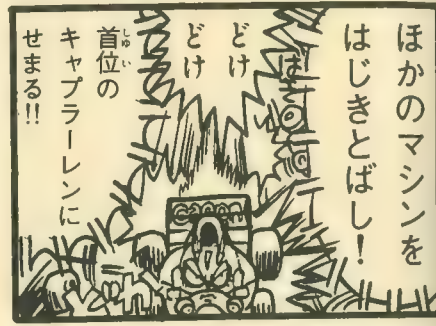 ほかのマシンを
はじきとばし!
どけ
どけ
首位の
しゅい
キャプラーレンに
せまる!!